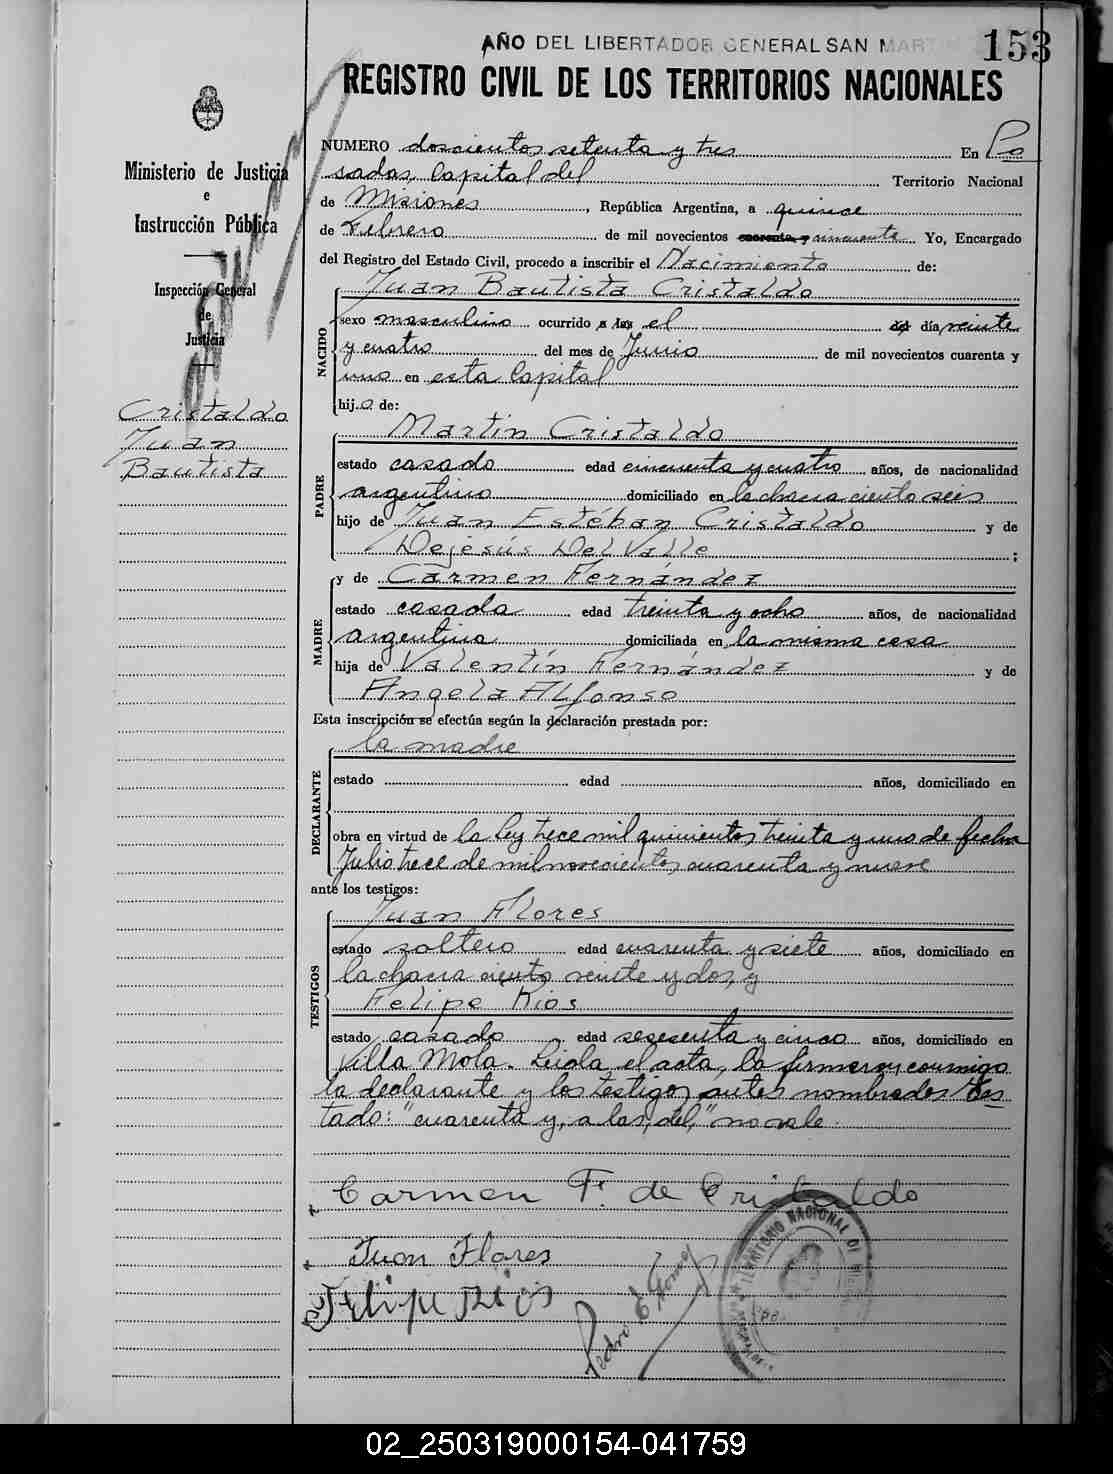 AÑO DEL LIBERTADOR GENERAL SAN MARTIN
153
REGISTRO CIVIL DE LOS TERRITORIOS NACIONALES
Ministerio de Justicia
e
Instrucción Pública
Inspección General
de
Justicia
Cristaldo
Juan
Bautista
NUMERO doscientos setenta y tres En Po
sadas, Capital del Territorio Nacional
de Misiones, República Argentina, a quince
de Febrero de mil novecientos cuarenta y cincuenta Yo, Encargado
del Registro del Estado Civil, procedo a inscribir el Nacimiento de:
NACIDO
Juan Bautista Cristaldo
sexo masculino ocurrido a las el del día veinte
y cuatro del mes de Junio de mil novecientos cuarenta y
uno en esta Capital
hijo de:
PADRE
Martín Cristaldo
estado casado edad cincuenta y cuatro años, de nacionalidad
argentino domiciliado en la chacra ciento seis
hijo de Juan Estéban Cristaldo y de
Dejesús Del Valle ;
MADRE
y de Carmen Fernández
estado casada edad treinta y ocho años, de nacionalidad
argentina domiciliada en la misma casa
hija de Valentín Fernández y de
Angela Alfonso
Esta inscripción se efectúa según la declaración prestada por:
DECLARANTE
la madre
estado edad años, domiciliado en
obra en virtud de la Ley trece mil quinientos treinta y uno de fecha
Julio trece de mil novecientos cuarenta y nueve
ante los testigos:
TESTIGOS
Juan Flores
estado soltero edad cuarenta y siete años, domiciliado en
la chacra ciento veinte y dos, y
Felipe Rios
estado casado edad sesenta y cinco años, domiciliado en
Villa Mola. Leída el acta, la firmaron conmigo
la declarante y los testigos antes nombrados Tes
tado: "cuarenta y, a las, del," no vale.
Carmen F. de Cristaldo
Juan Flores
Felipe Rios
Pedro E Gomez
TERRITORIO NACIONAL DE
02_250319000154-041759